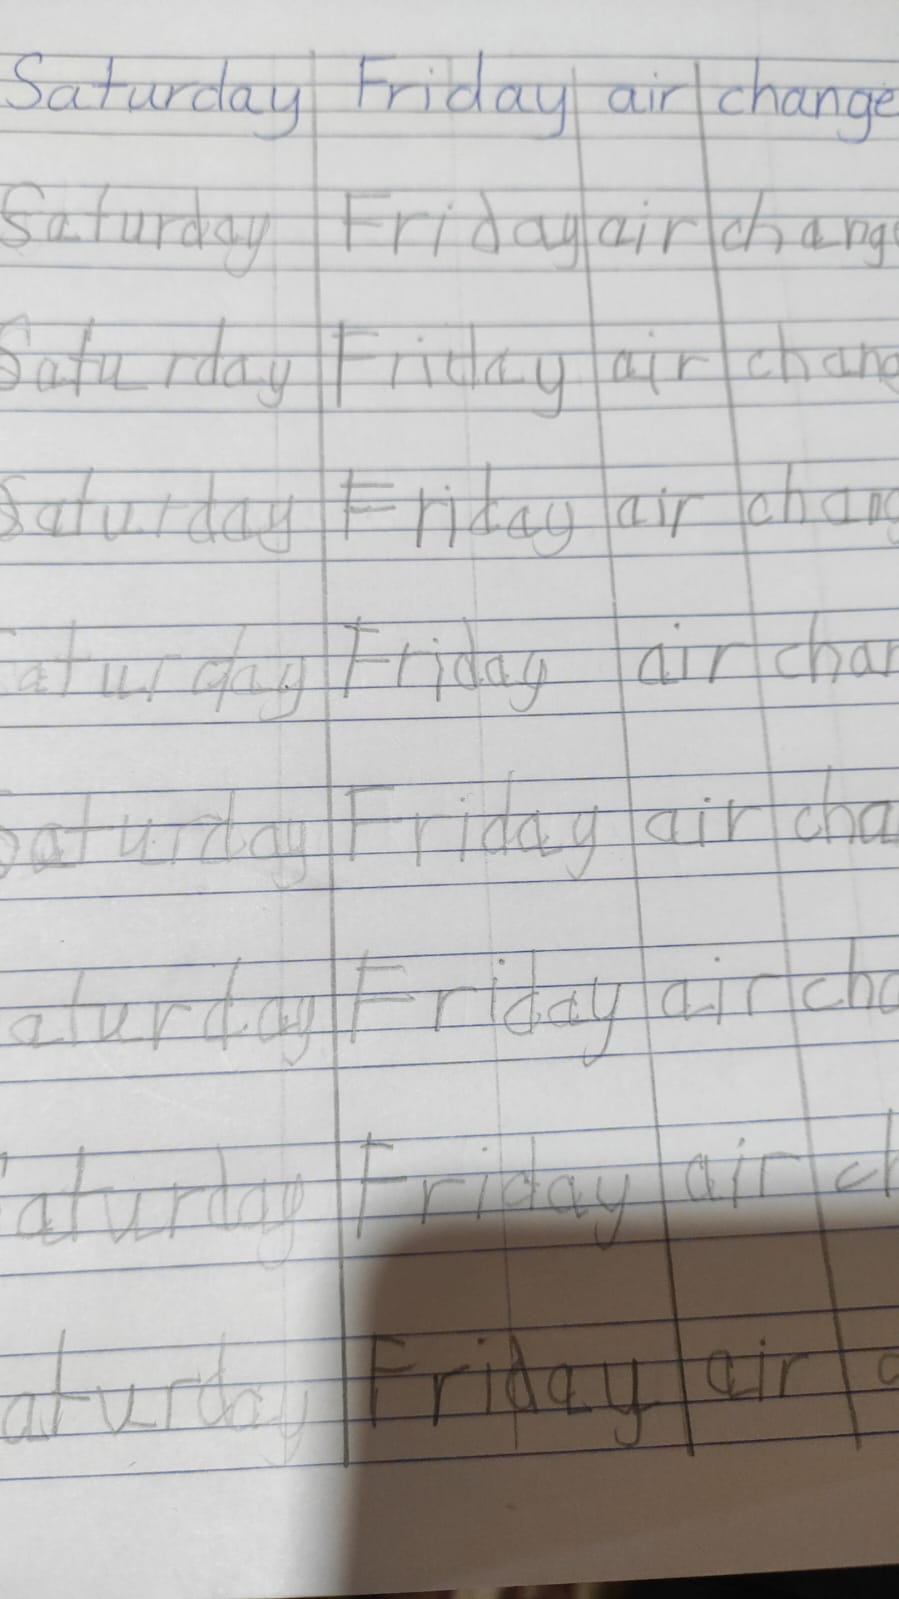 Saturday Friday air change
Saturday Friday air chang
Saturday Friday air chang
Saturday Friday air chang
aturday Friday air chan
Saturday Friday air cha
aturday Friday air cha
aturday Friday air ch
aturday Friday air c